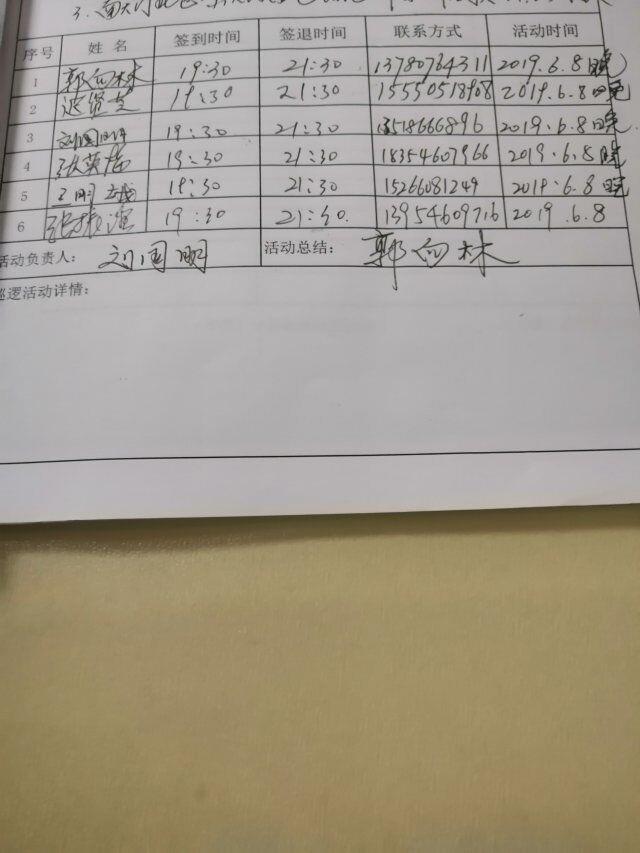 3.
序号 姓 名 签到时间 签退时间 联系方式 活动时间
1 郭向林 19:30 21:30 13780764311 2019.6.8晚
2 19:30 21:30 15550518908 2019.6.8晚
3 刘国明 19:30 21:30 13518666896 2019.6.8晚
4 张英 19:30 21:30 18354607966 2019.6.8晚
5 王明 19:30 21:30 15266081249 2019.6.8晚
6 张振 19:30 21:30 13954609716 2019.6.8
活动负责人: 刘国明 活动总结: 郭向林
巡逻活动详情: